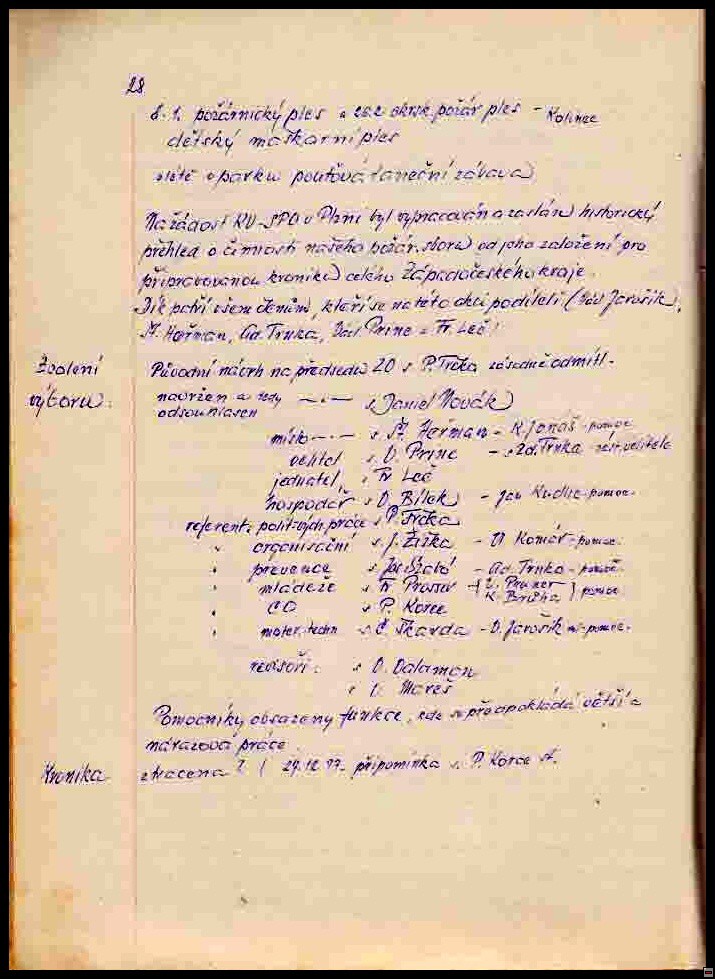 28
8. 1. požárnický ples a 26.2 okrsk. požár ples – Kolinec
dětský maškarní ples
v létě v parku pouťová taneční zábava
Na žádost KV-SPO v Plzni byl vypracován a zaslán historický
přehled o činnosti našeho požár. sboru od jeho založení pro
připravovanou kroniku celého Západočeského kraje.
Dík patří všem členům, kteří se na této akci podíleli (Jarošík,
Heřman, Ad. Trnka, Princ a Fr. Leč!
Zvolení
výboru.
Původní návrh na předsedu ZO s P. Trčka zásadně odmítl.
navržen a tedy
odsouhlasen —·— s Daniel Novák
místo —·— s Heřman – K. Jonáš – pomoc
velitel s Princ – s Ad. Trnka – zást. velitele
jednatel, s Fr Leč
hospodář s Bílek – Jan Kudlic – pomoc.
referent: polit-vých. práce s P. Trčka
" organisační s J. Žižka – Vl Komár – pomoc.
" prevence s Szabó – Ad. Trnka – pomoc.
" mládeže s Fr – K. Brůha } pomoc
" CO s P. Korec
" mater. techn s Č. Škarda – Jarošík – pomoc.
revisoři: s Dalaman
s Mareš
Pomocníky obsazeny funkce, kde se předpokládá větší a
nárazová práce
Kronika ztracena? ( 29.12 77 – připomínka s. P. Korce st.